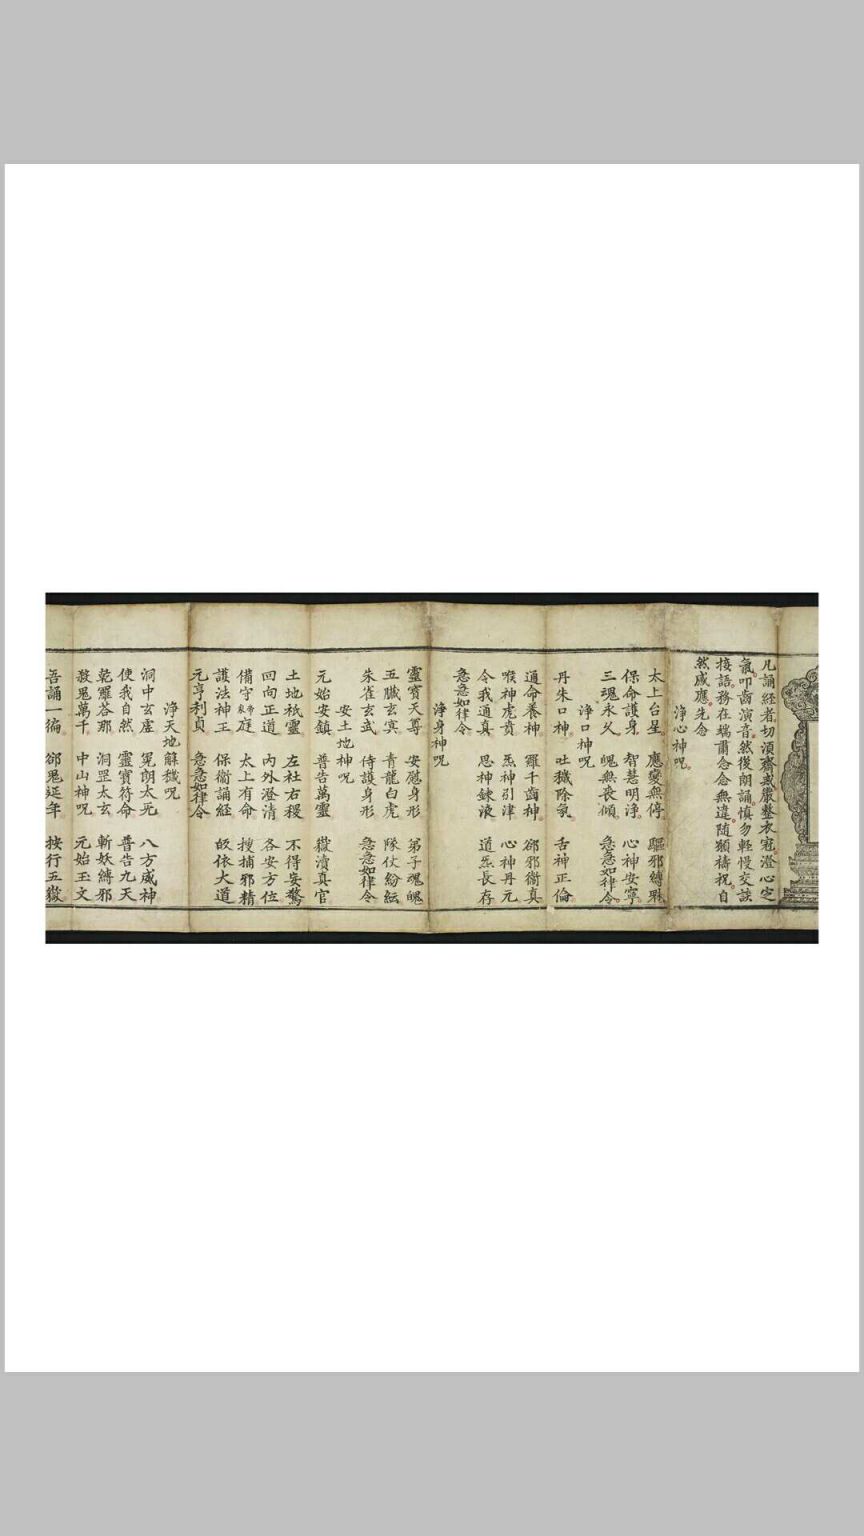 凡誦經者切須齋戒嚴整衣冠澄心定
氣叩齒演音然後朗誦慎勿輕慢交談
接語務在端肅念念無違随願禱祝自
然感應先念
淨心神呪
太上台星 應變無停 驅邪縛魅
保命護身 智慧明淨 心神安寧
三魂永久 魄無喪傾 急急如律令
淨口神呪
丹朱口神 吐穢除氛 舌神正倫
通命養神 羅千齒神 郤邪衛真
喉神虎賁 炁神引津 心神丹元
令我通真 思神鍊液 道炁長存
急急如律令
淨身神呪
靈寶天尊 安慰身形 弟子魂魄
五臟玄冥 青龍白虎 隊仗紛紜
朱雀玄武 侍護身形 急急如律令
安土地神呪
元始安鎮 普告萬靈 嶽瀆真官
土地祇靈 左社右稷 不得妄驚
回向正道 內外澄清 各安方位
備守家庭 太上有命 搜捕邪精
護法神王 保衛誦經 皈依大道
元亨利貞 急急如律令
淨天地解穢呪
洞中玄虛 晃朗太元 八方威神
使我自然 靈寶符命 普告九天
乾羅荅那 洞罡太玄 斬妖縛邪
殺鬼萬千 中山神呪 元始玉文
吾誦一徧 郤鬼延年 按行五嶽